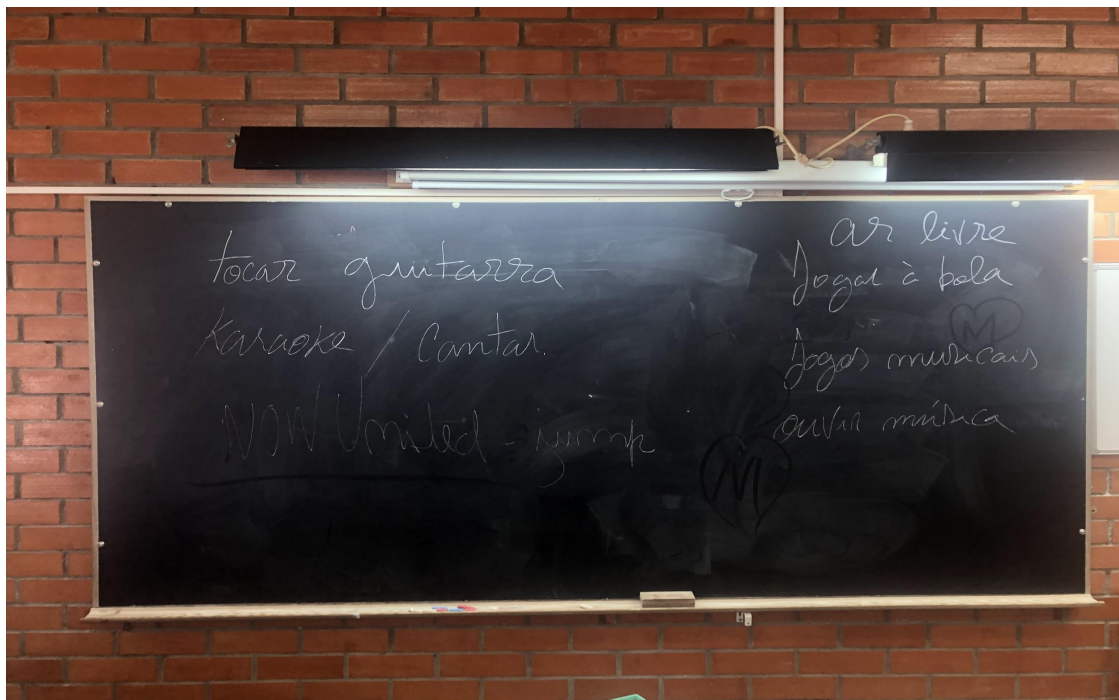 tocar guitarra
Karaoke / Cantar.
NOW United - jump
ar livre
Jogar à bola
M
Jogos musicais
ouvir música
M